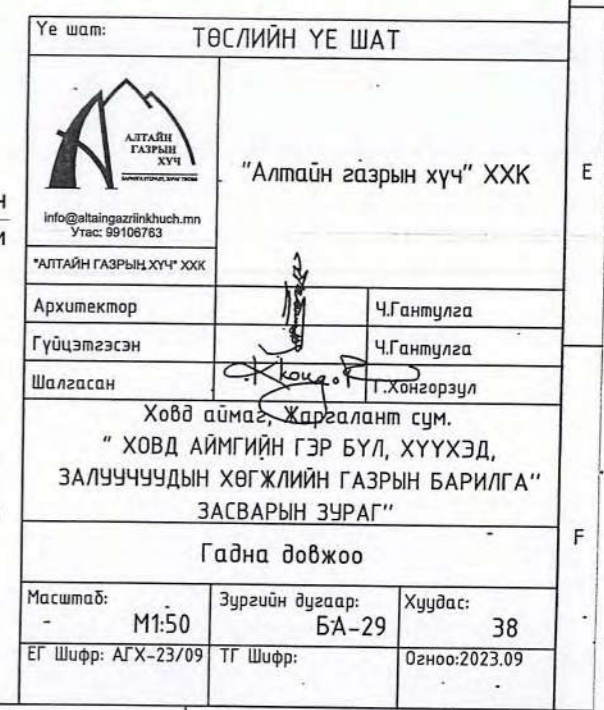 Үе шат: ТӨСЛИЙН ҮЕ ШАТ
АЛТАЙН
ГАЗРЫН
ХҮЧ
info@altaingazriinkhuch.mn
Утас: 99106763
"АЛТАЙН ГАЗРЫН ХҮЧ" ХХК
"Алтайн газрын хүч" ХХК
Архитектор Ч.Гантулга
Гүйцэтгэсэн Ч.Гантулга
Шалгасан Г.Хонгорзул
Ховд аймаг, Жаргалант сум.
" ХОВД АЙМГИЙН ГЭР БҮЛ, ХҮҮХЭД,
ЗАЛУУЧУУДЫН ХӨГЖЛИЙН ГАЗРЫН БАРИЛГА"
ЗАСВАРЫН ЗУРАГ"
Гадна довжоо
Масштаб: Зургийн дугаар: Хуудас:
- М1:50 БА-29 38
ЕГ Шифр: АГХ-23/09 ТГ Шифр: Огноо:2023.09
E
F